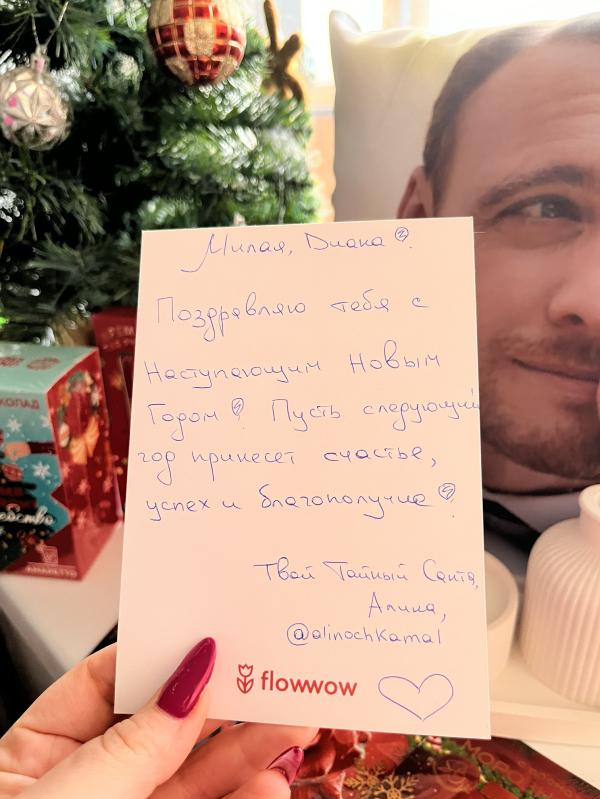 Милая, Диана!
Поздравляю тебя с
Наступающим Новым
Годом! Пусть следующий
год принесет счастье,
успех и благополучие!
Твой Тайный Санта,
Алина,
@alinochkamal
flowwow
КОЛАД
АМАРЕТТО